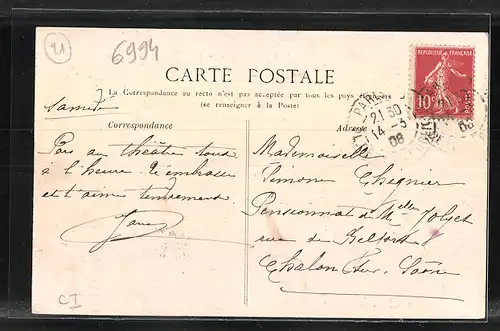 21
6994
CARTE POSTALE
La Correspondance au recto n'est pas acceptée par tous les pays
(se renseigner à la Poste)
REPUBLIQUE FRANÇAISE
10
POSTES
PARIS
21 30
14 - 3
08
Samedi
Correspondance
Adresse
au théâtre tous
à l'heure. Je t'embrasse
et t'aime tendrement
Mademoiselle
Simone Chignier
Pensionnat de Melles Jolyet
rue de Belfort 8
Chalon sur Saône
CI